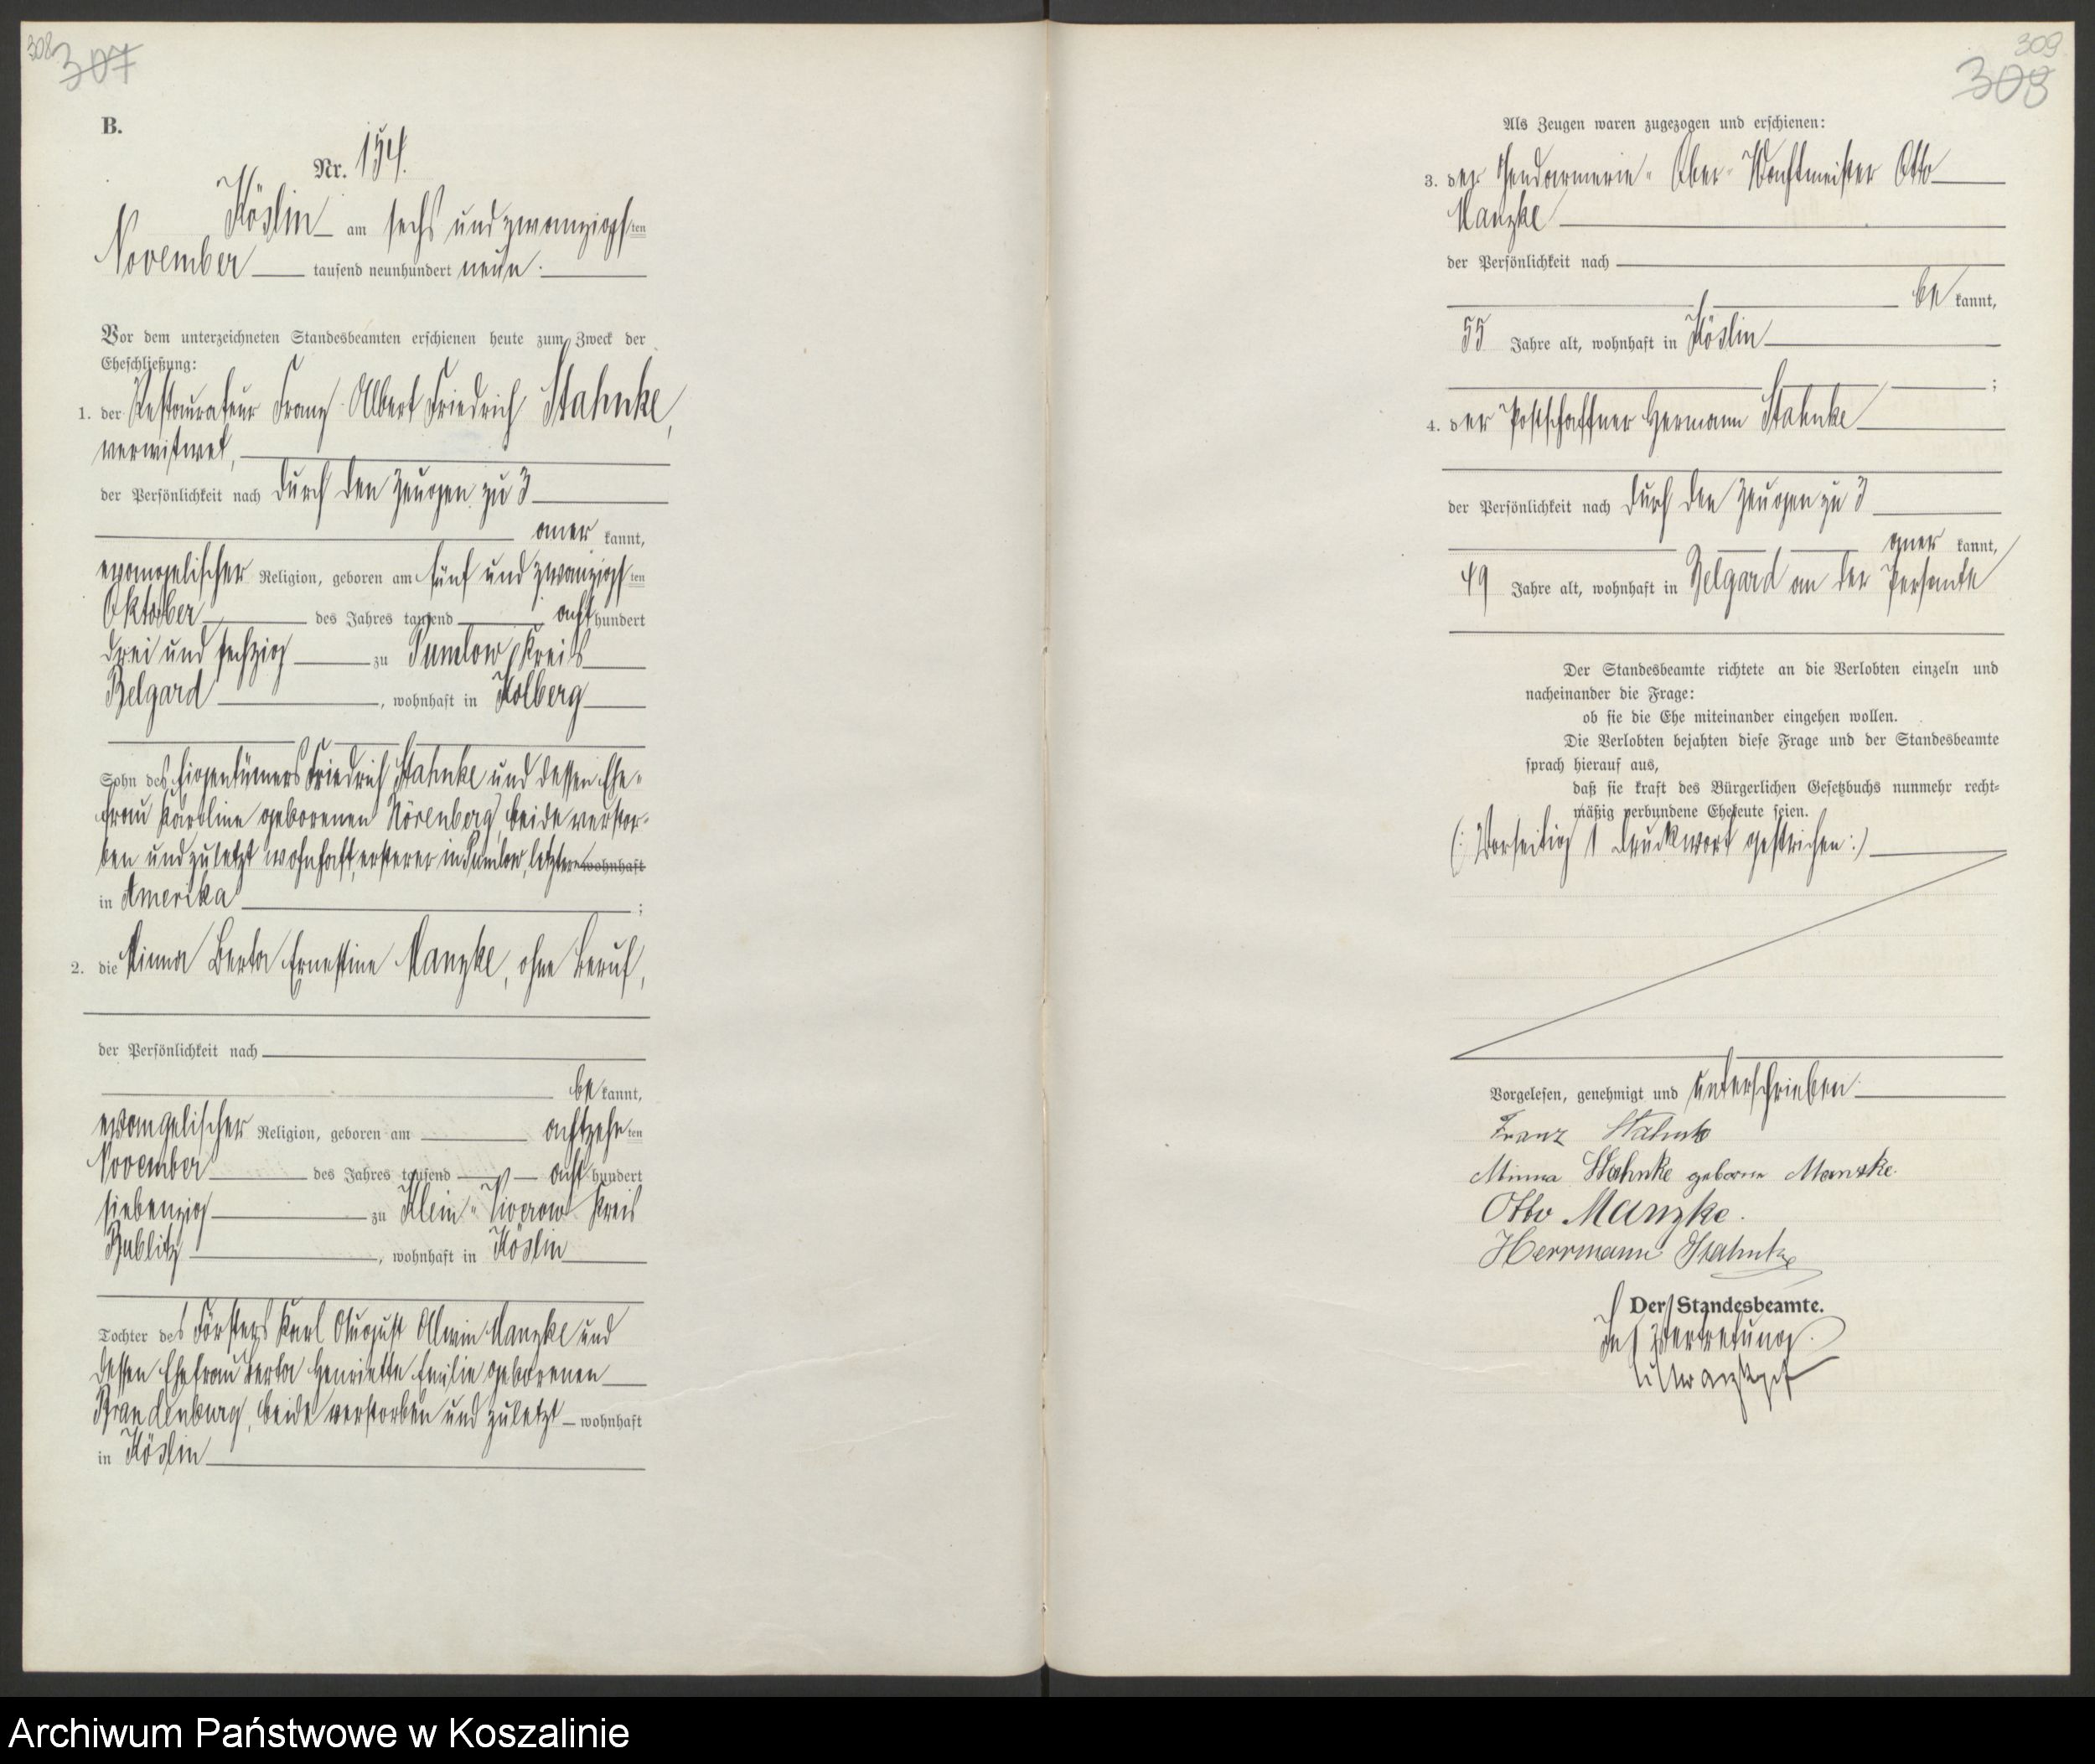 308
307
B.
Nr. 154.
Köslin am sechs und zwanzigsten
November tausend neunhundert neun.
Vor dem unterzeichneten Standesbeamten erschienen heute zum Zweck der
Eheschließung:
1. der Restaurateur Franz Albert Friedrich Stahnke,
verwitwet,
der Persönlichkeit nach durch den Zeugen zu 3
aner kannt,
evangelischer Religion, geboren am fünf und zwanzigsten
Oktober des Jahres tausend acht hundert
drei und sechzig zu Pumlow, Kreis
Belgard, wohnhaft in Kolberg
Sohn des Eigentümers Friedrich Stahnke und dessen Ehe-
frau Karoline geborenen Nörenberg, beide verstor-
ben und zuletzt wohnhaft, ersterer in Pumlow, letztere wohnhaft
in Amerika;
2. die Minna Berta Ernestine Manzke, ohne Beruf,
der Persönlichkeit nach
be kannt,
evangelischer Religion, geboren am achtzehnten
November des Jahres tausend acht hundert
siebenzig zu Klein- Kreis
Bublitz, wohnhaft in Köslin
Tochter des Försters Karl August Alwin Manzke und
dessen Ehefrau Berta Henriette Emilie geborenen
Brandenburg, beide verstorben und zuletzt wohnhaft
in Köslin
309
308
Als Zeugen waren zugezogen und erschienen:
3. der Gendarmerie-Ober-Wachtmeister Otto
Manzke
der Persönlichkeit nach
be kannt,
55 Jahre alt, wohnhaft in Köslin
;
4. der Postschaffner Hermann Stahnke
der Persönlichkeit nach durch den Zeugen zu 3
aner kannt,
49 Jahre alt, wohnhaft in Belgard an der Persante
Der Standesbeamte richtete an die Verlobten einzeln und
nacheinander die Frage:
ob sie die Ehe miteinander eingehen wollen.
Die Verlobten bejahten diese Frage und der Standesbeamte
sprach hierauf aus,
daß sie kraft des Bürgerlichen Gesetzbuchs nunmehr recht-
mäßig verbundene Eheleute seien.
(: Vorseitig 1 Druckwort gestrichen :)
Vorgelesen, genehmigt und unterschrieben
Franz Stahnke
Minna Stahnke geborne Manzke.
Otto Manzke.
Herrmann Stahnke
Der Standesbeamte.
In Vertretung.
Archiwum Państwowe w Koszalinie